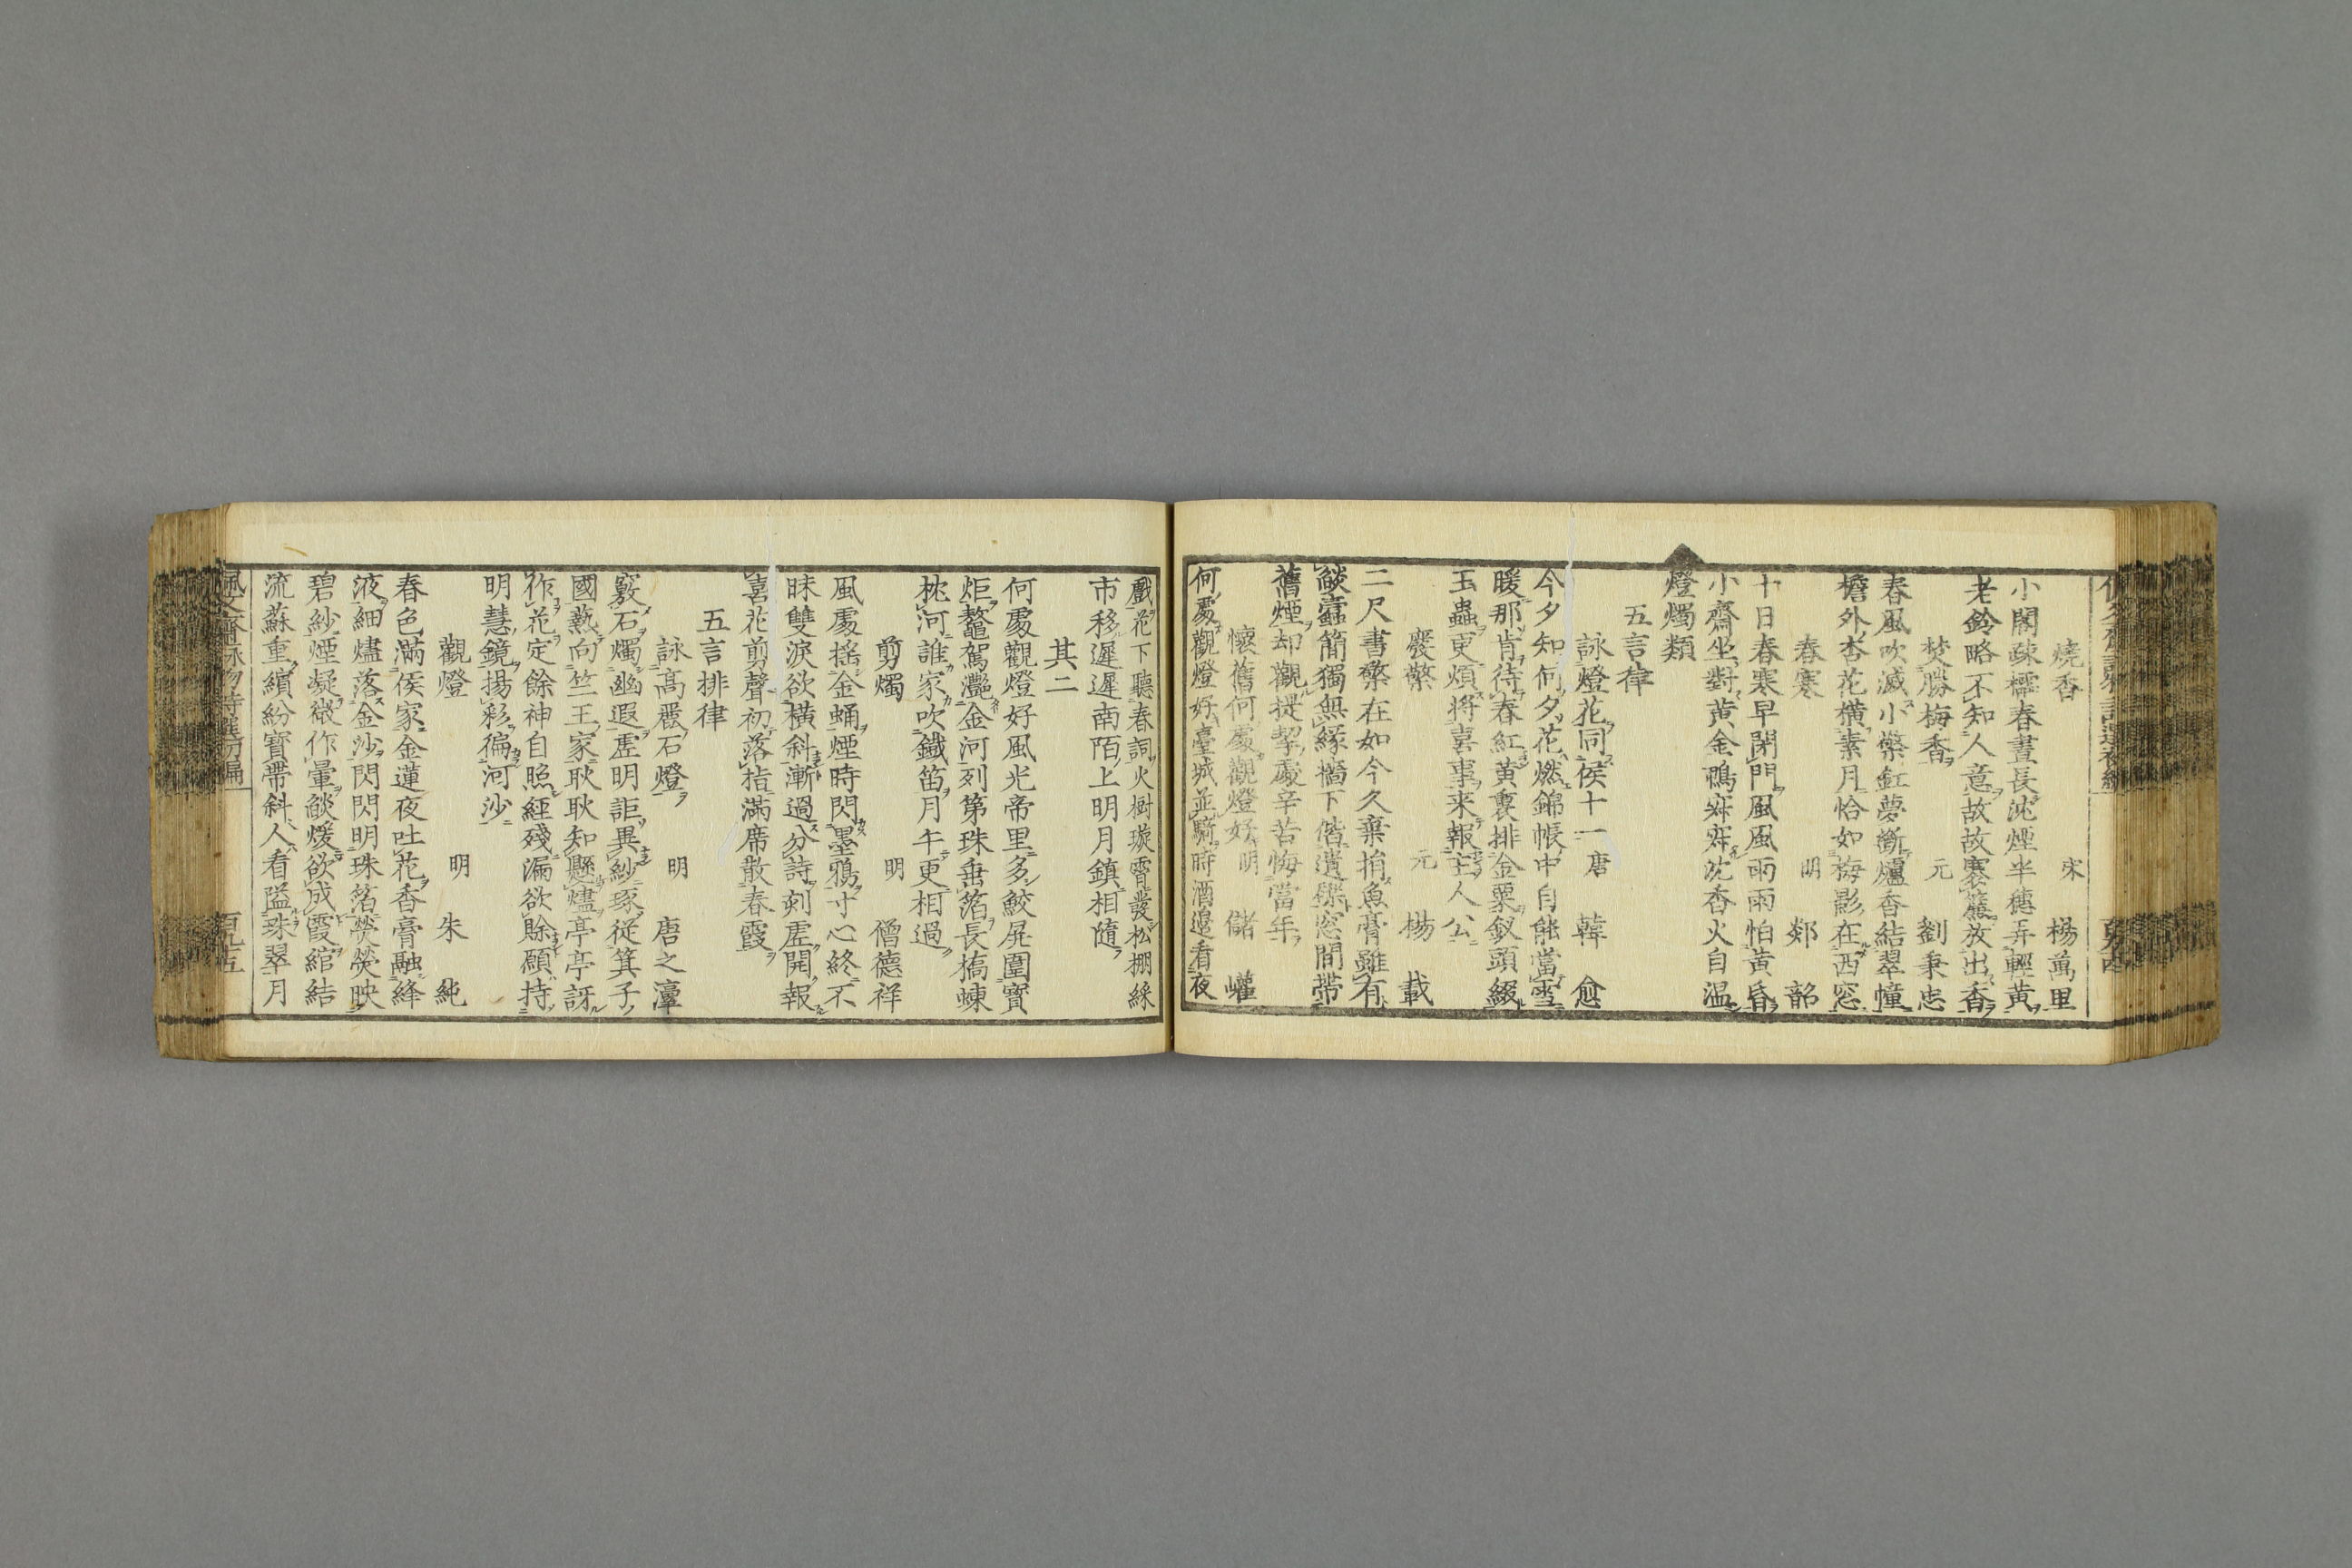 燒香 宋 楊萬里
小閣疎櫺春晝長沈煙半穗弄輕黄
老鈴略不知人意故故褰簾放出香
焚勝梅香 元 劉秉忠
春風吹滅小檠釭夢斷爐香結翠幢
檐外杏花横素月恰如梅影在西窓
春寒 明 郯韶
十日春寒早閉門風風雨雨怕黄昏
小齋坐對黄金鴨寂寂沈香火自温
燈燭類
五言律
詠燈花同侯十一 唐 韓愈
今夕知何夕花燃錦帳中自能當雪
暖那肯待春紅黄裏排金粟釵頭綴
玉蟲更煩將喜事來報主人公
廢檠 元 楊載
二尺書檠在如今久棄捐魚膏雖有
燄蠹簡獨無緣牆下偕遺礫窓間帶
舊煙却觀提挈處辛苦悔當年
懷舊何處觀燈好 明 儲巏
何處觀燈好臺城並騎時酒邊看夜
戲花下聽春詞火樹璇霄發松棚綵
市移遲遲南陌上明月鎮相隨
其二
何處觀燈好風光帝里多鮫屏圍寳
炬鼇駕灩金河列第珠垂箔長橋蝀
枕河誰家吹鐵笛月午更相過
剪燭 明 僧德祥
風處揺金蛹煙時閃墨鴉寸心終不
昧雙淚欲横斜漸過分詩刻虚開報
喜花剪聲初落指滿席散春霞
五言排律
詠高麗石燈 明 唐之灣
竅石燭幽遐虚明詎異紗琢從箕子
國爇向竺王家耿耿知懸燼亭亭訝
作花定餘神自照經殘漏欲賖願持
明慧鏡揚彩徧河沙
觀燈 明 朱純
春色滿侯家金蓮夜吐花香膏融絳
液細燼落金沙閃閃明珠箔熒熒映
碧紗煙凝微作暈燄煖欲成霞綰結
流蘇重繽紛寳帶斜人看隘珠翠月
百九十五